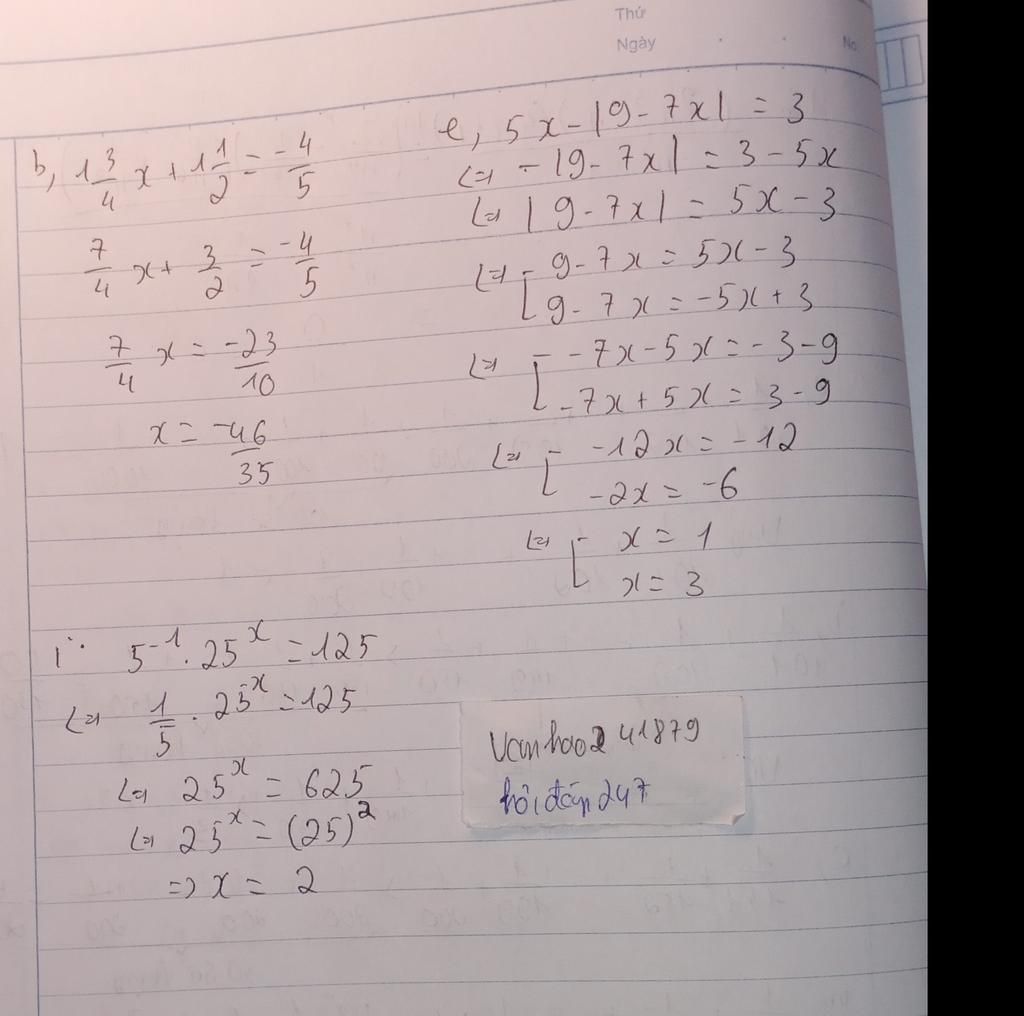 Thứ
Ngày
No
b, 1 3/4 x + 1 1/2 = -4/5
7/4 x + 3/2 = -4/5
7/4 x = -23/10
x = -46/35
e, 5x - |9 - 7x| = 3
⇔ - |9 - 7x| = 3 - 5x
⇔ |9 - 7x| = 5x - 3
⇔ [ 9 - 7x = 5x - 3
9 - 7x = -5x + 3
⇔ [ -7x - 5x = -3 - 9
-7x + 5x = 3 - 9
⇔ [ -12x = -12
-2x = -6
⇔ [ x = 1
x = 3
i. 5^-1 . 25^x = 125
⇔ 1/5 . 25^x = 125
⇔ 25^x = 625
⇔ 25^x = (25)^2
⇒ x = 2
Vanhao2 41879
hỏi đáp 247